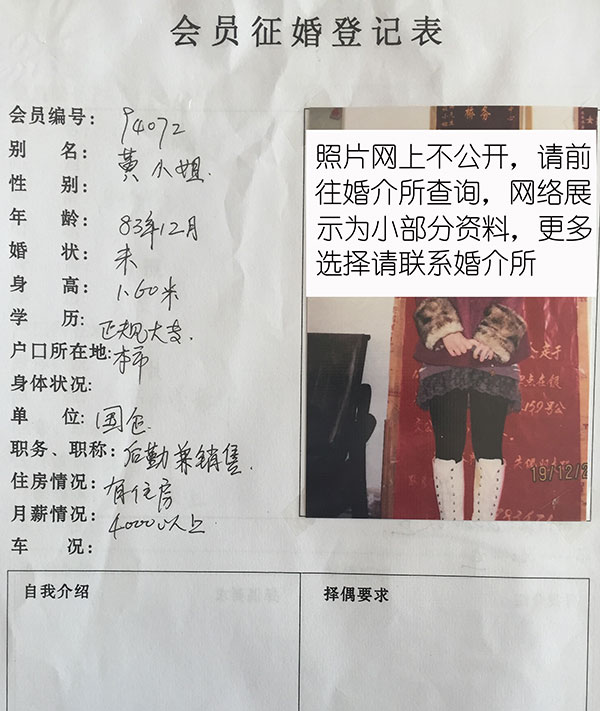 会员征婚登记表
会员编号: 94072
别 名: 黄小姐.
性 别:
年 龄: 83年12月
婚 状: 未
身 高: 1.60米
学 历: 正规大专.
户口所在地: 本市
身体状况:
单 位: 国企
职务、职称: 后勤兼销售.
住房情况: 有住房
月薪情况: 4000以上
车 况:
照片网上不公开，请前
往婚介所查询，网络展
示为小部分资料，更多
选择请联系婚介所
19/12/2
自我介绍
择偶要求